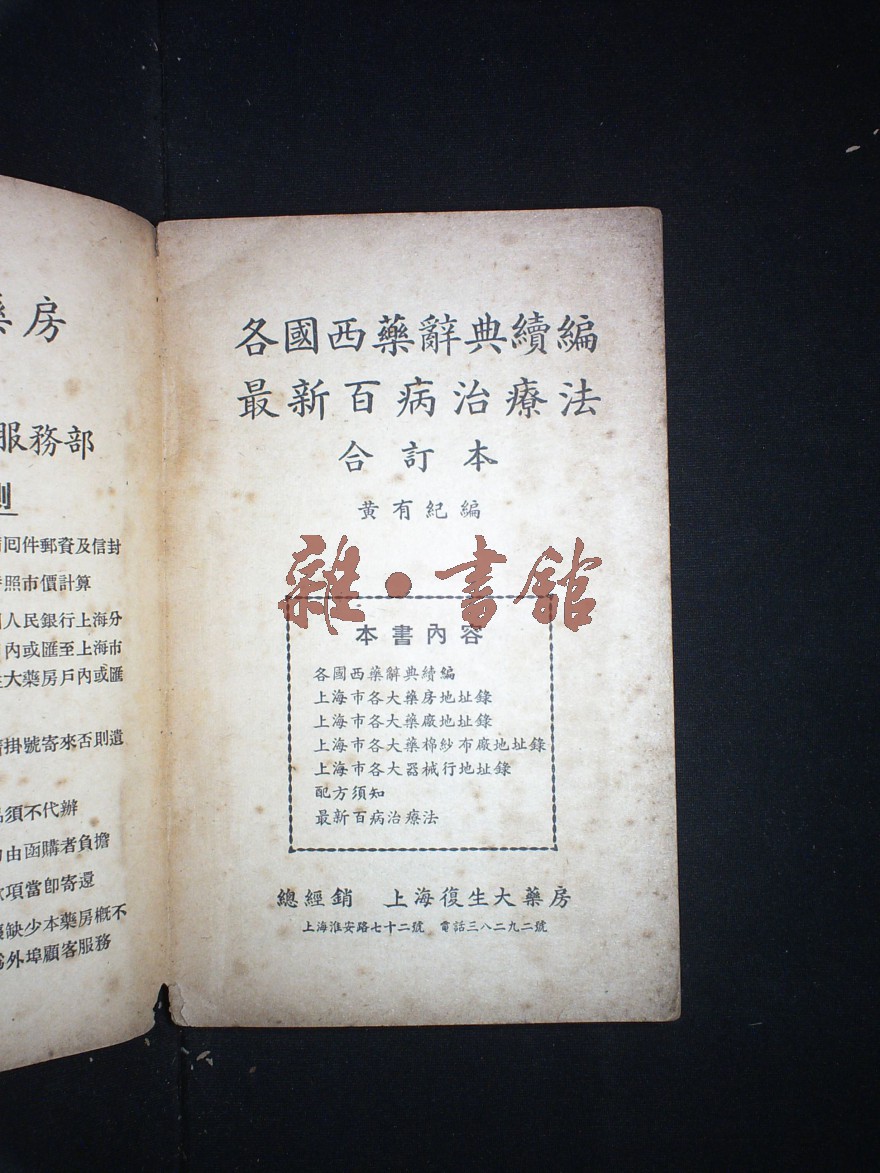 藥房
服務部
則
回件郵資及信封
照市價計算
人民銀行上海分
內或匯至上海市
大藥房戶內或匯
掛號寄來否則遺
須不代辦
由函購者負擔
項當卽寄還
缺少本藥房概不
外埠顧客服務
各國西藥辭典續編
最新百病治療法
合訂本
黃有紀編
雜·書館
本書內容
各國西藥辭典續編
上海市各大藥房地址錄
上海市各大藥廠地址錄
上海市各大藥棉紗布廠地址錄
上海市各大器械行地址錄
配方須知
最新百病治療法
總經銷 上海復生大藥房
上海淮安路七十二號 電話三八二九二號